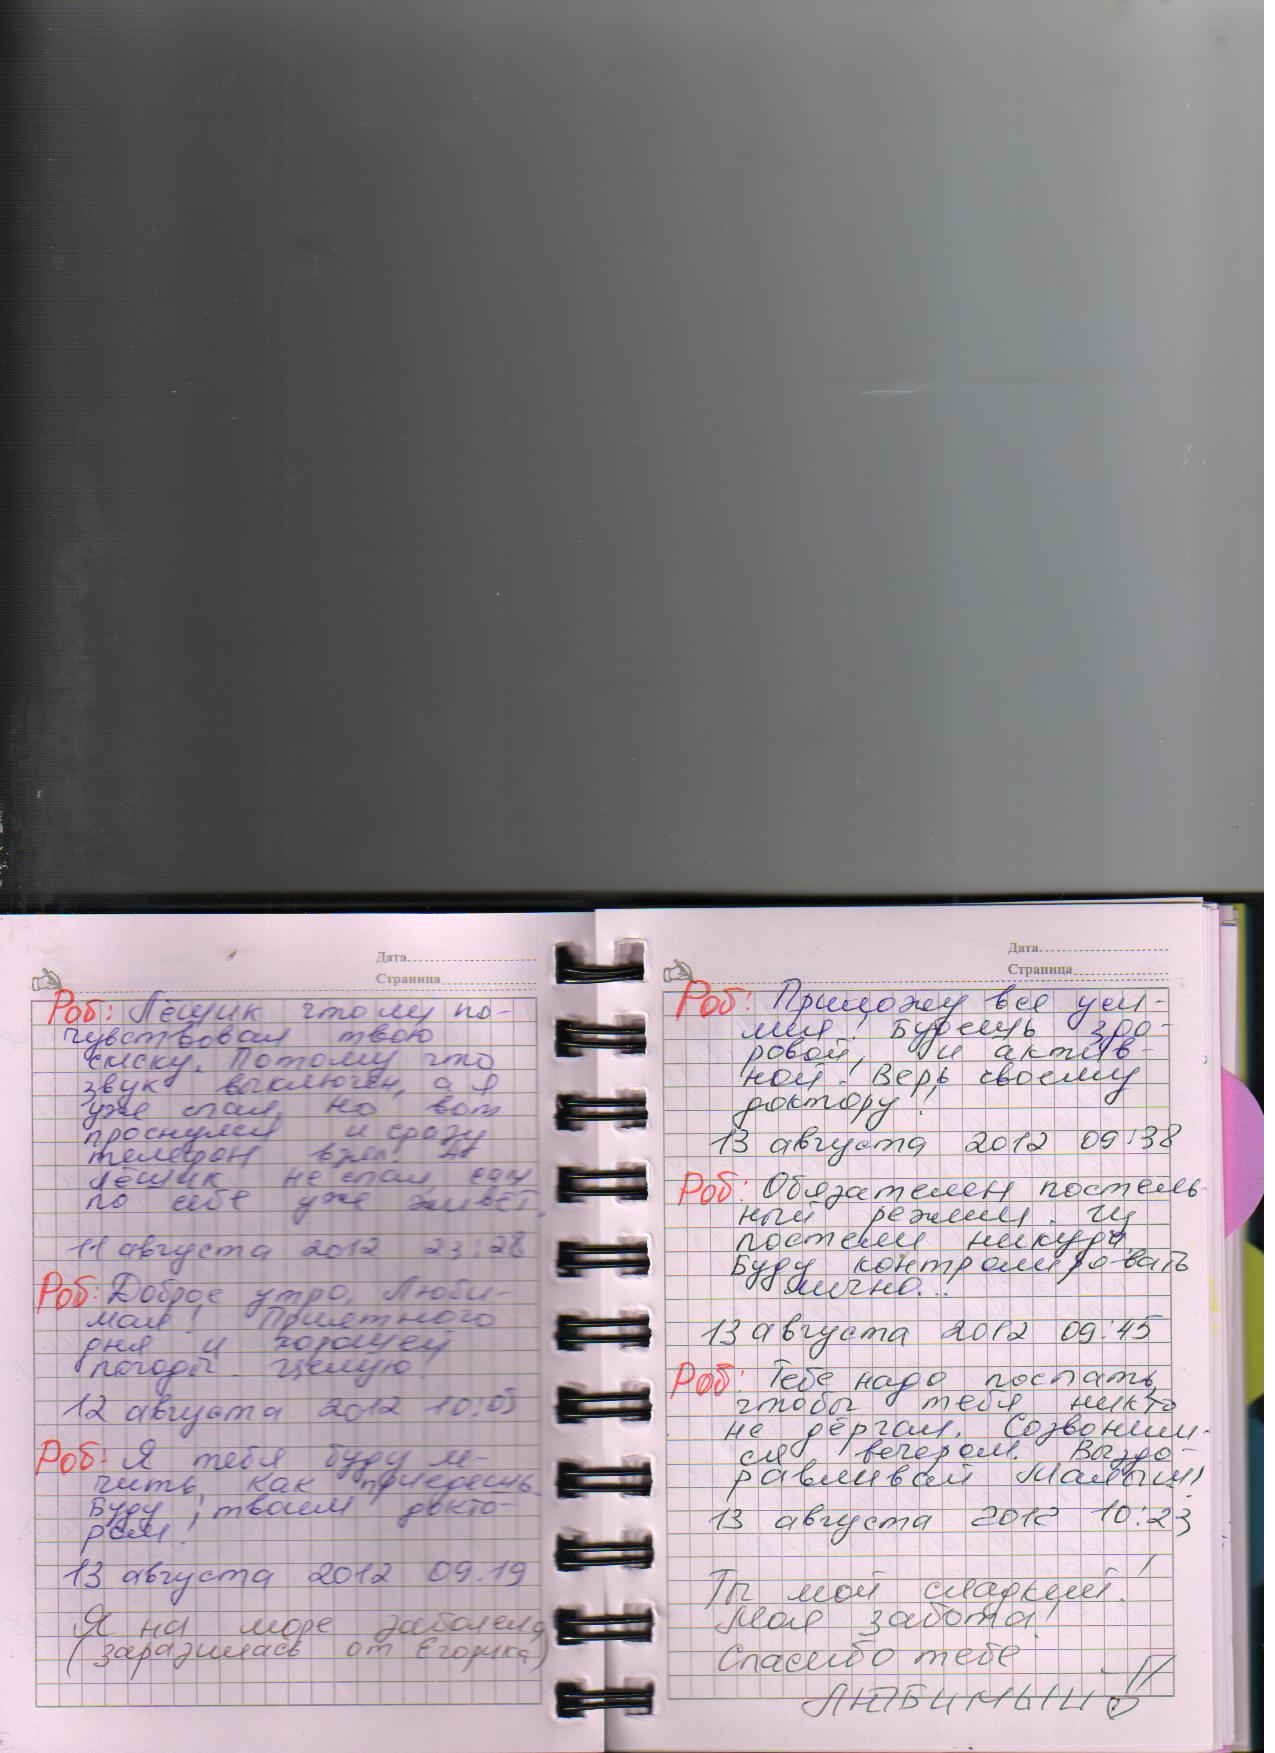 Дата
Страница
Роб: Лёщик что му по-
чувствовал твою
смску. Потому что
звук выключен, а я
уже спал, но вот
проснулся и сразу
телефон взял
Лёщик не спал, сам
по себе уже живёт.
11 августа 2012 23:28
Роб: Доброе утро, Люби-
мая! Приятного
дня и хорошей
погоды. Целую
12 августа 2012 10:05
Роб: Я тебя буду ле-
чить, как приедешь.
Буду твоим докто-
ром!
13 августа 2012 09.19
Я на море заболела
(заразилась от Егорика)
Дата
Страница
Роб: Приложу все уси-
лия! Будешь здо-
ровой, и актив-
ной! Верь своему
доктору!
13 августа 2012 09:38
Роб: Обязателен постель-
ный режим.
постели никуда.
Буду контролировать
лично...
13 августа 2012 09:45
Роб: Тебе надо поспать,
чтобы тебя никто
не дёргал. Созвоним-
ся вечером. Выздо-
равливай Малыш!
13 августа 2012 10:23
Ты мой сладкий!
Моя забота!
Спасибо тебе
ЛЮБИМЫЙ